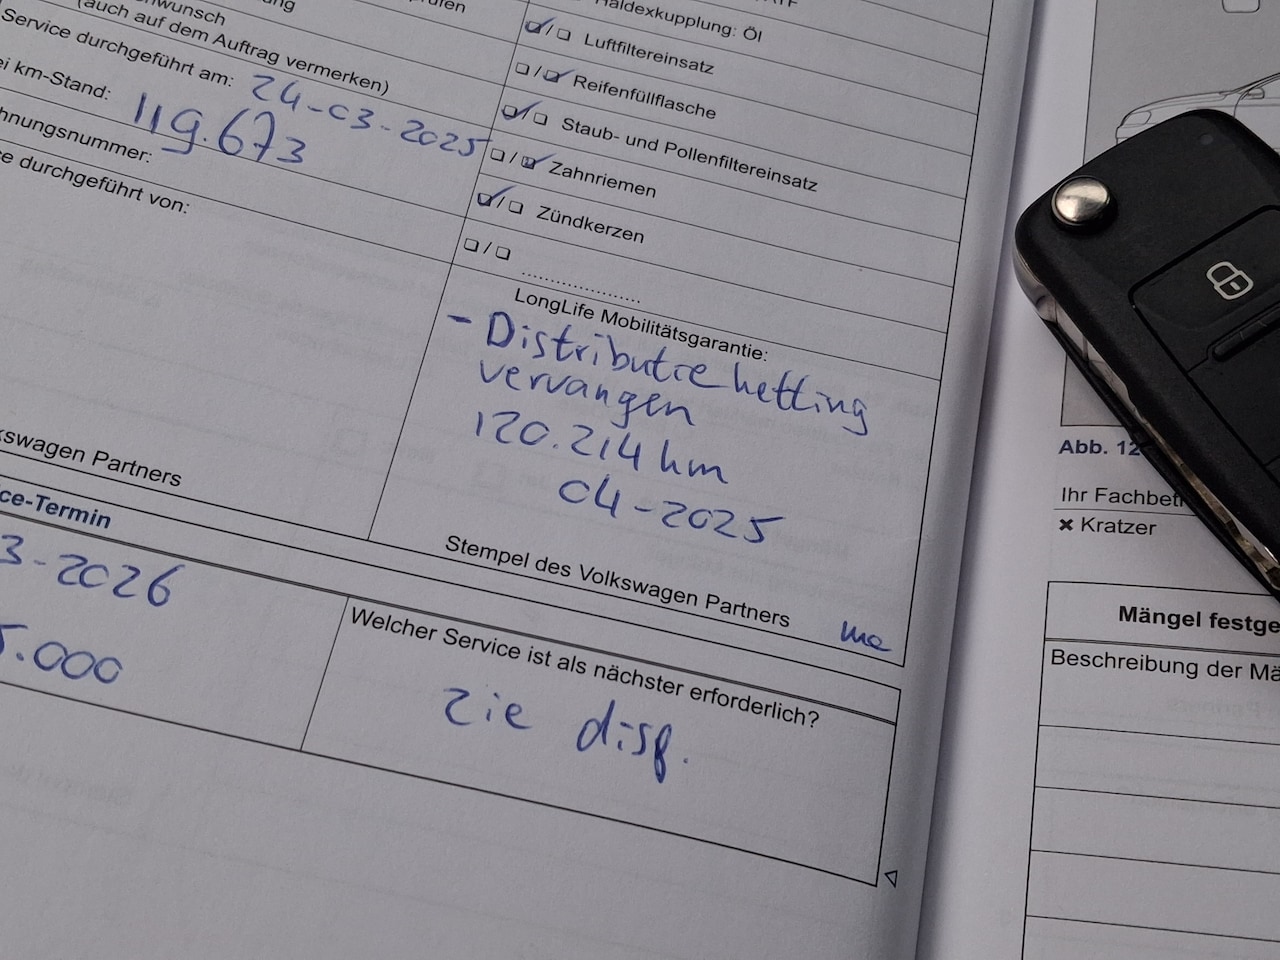 (auch auf dem Auftrag vermerken)
Service durchgeführt am: 24-03-2025
km-Stand: 119.673
durchgeführt von:
Partners
-Termin
-2026
.000
Haldexkupplung: Öl
☑/☐ Luftfiltereinsatz
☐/☑ Reifenfüllflasche
☑/☐ Staub- und Pollenfiltereinsatz
☐/☑ Zahnriemen
☑/☐ Zündkerzen
☐/☐ ....................
LongLife Mobilitätsgarantie:
- Distributie ketting
vervangen
120.214 km
04-2025
Stempel des Volkswagen Partners
Welcher Service ist als nächster erforderlich?
zie disp.
Abb. 12
Ihr
✖ Kratzer
Mängel
Beschreibung der